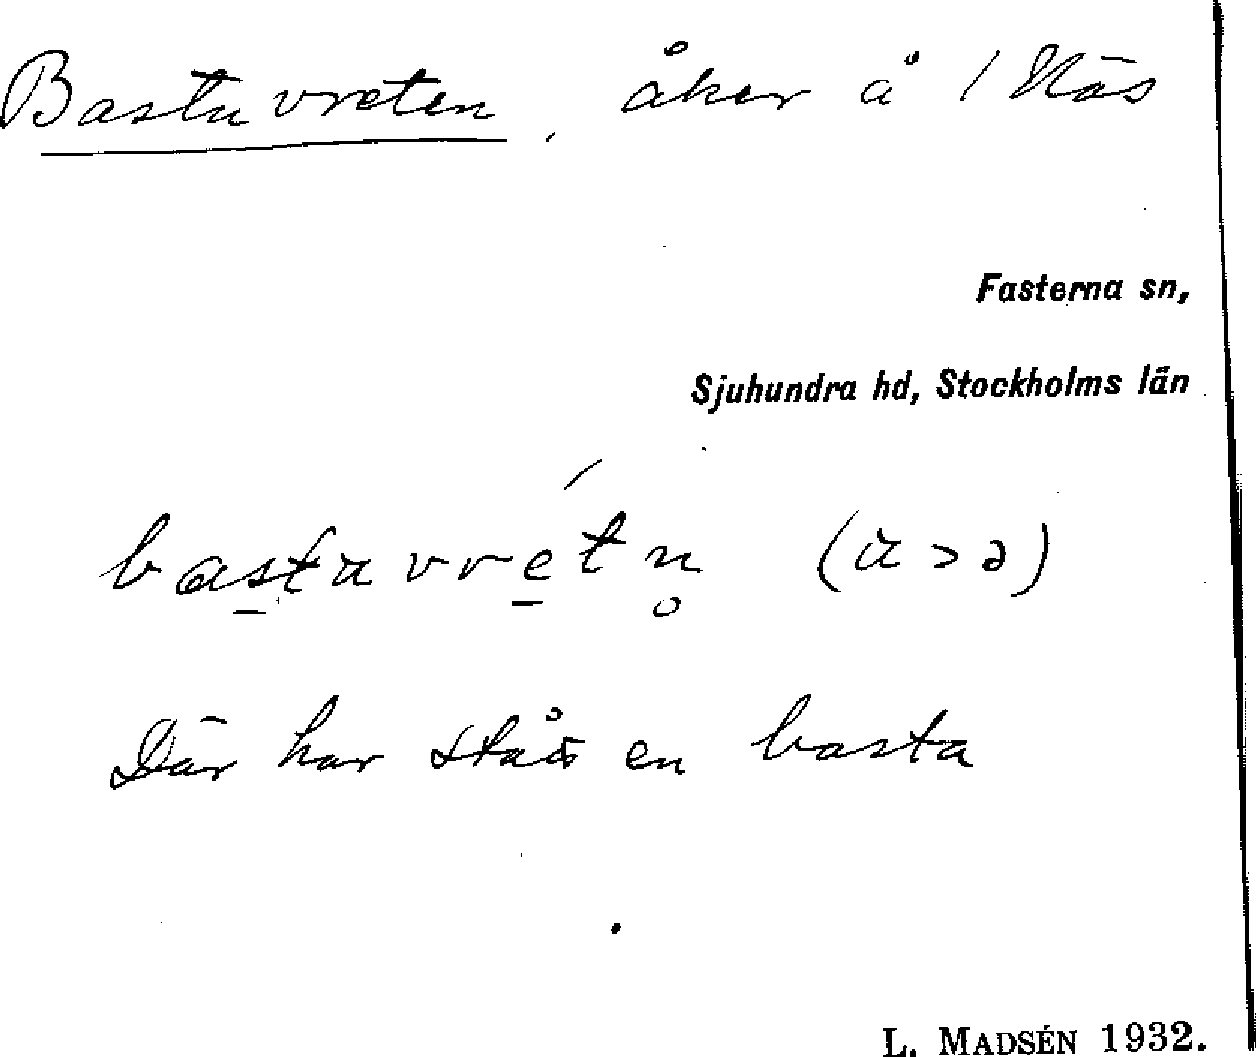 Bastuvreten, åker å 1 Näs
Fasterna sn,
Sjuhundra hd, Stockholms län
bastuvrétn̥ (u > ə)
Där har stått en basta
L. MADSÉN 1932.